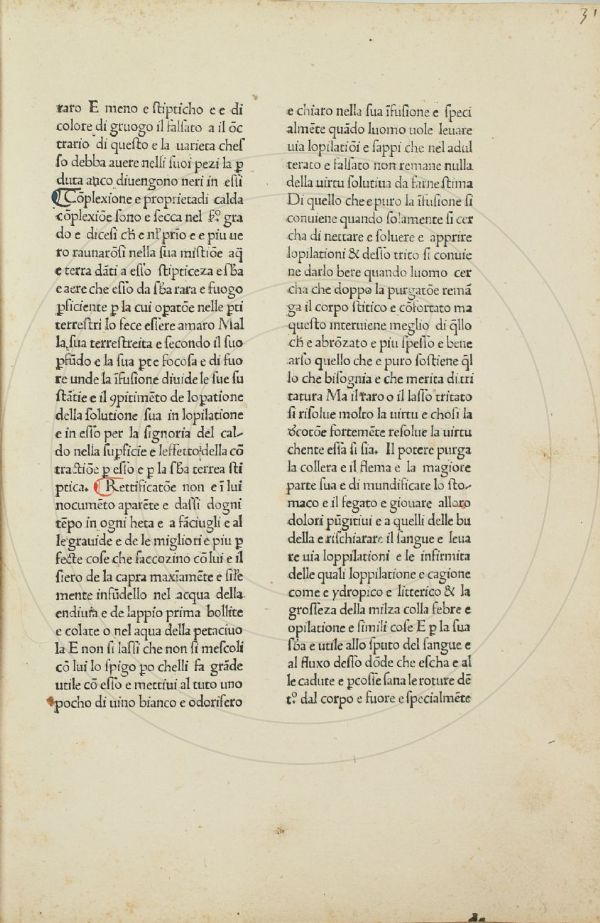 31
raro E meno e ſtipticho e e di
colore di gruogo il falſato a il ōc
trario di queſto e la uarieta cheſ
ſo debba auere nelli ſuoi pezi la ꝑ
duta auco diuengono neri in eſſi
Cōplexione e proprietadi calda
cōplexiōe ſono e ſecca nel gra
do e diceſi ch̄ e prīo e e piu ue
ro raunarōſi nella ſua miſtiōe aq̄
e terra dāti a eſſo ſtipticeza e ſba
e aere che eſſo da ſba rara e fuogo
ꝑſiciente ꝑ la cui opatōe nelle pti
terreſtri lo fece eſſere amaro Mal
la ſua terreſtreita e ſecondo il ſuo
ꝓfūdo e la ſua pte focoſa e di fuo
re unde la īfuſione diuide le ſue ſu
ſtātie e il ꝯpitimēto de lo patione
della ſolutione ſua in lopilatione
e in eſſo per la ſignoria del cal⸗
do nella ſupficie e leffetto della cō
tractiōe ꝑ eſſo e ꝑ la ſba terrea ſti
ptica. Rettificatōe non e ī lui
nocumēto aparēte e daſſi dogni
tēpo in ogni heta e a fāciugli e al
le grauide e de le migliori e piu ꝑ
fecte coſe che ſaccozino cō lui e il
ſiero de la capra maxīamēte e ſiſe
mente infūdello nel acqua della
endiuia e de lappio prima bollite
e colate o nel aqua della petaciuo
la E non ſi laſſi che non ſi meſcoli
cō lui lo ſpigo po chelli fa grāde
utile cō eſſo e mettiui al tuto uno
pocho di uino bianco e odorifero
e chiaro nella ſua īfuſione e ſpeci
almēte quādo luomo uole leuare
uia lopilatiōi e ſappi che nel adul
terato e falſato non remane nulla
della uirtu ſolutiua da farne ſtima
Di quello che e puro la īfuſione ſi
conuiene quando ſolamente ſi cer
cha di nettare e ſoluere e apprire
lopilationi & deſſo trito ſi conuie
ne darlo bere quando luomo cer
cha che doppo la purgatōe remā
ga il corpo ſtitico e cōfortato ma
queſto interuiene meglio di q̄llo
ch̄ e abrōzato e piu ſpeſſo e bene
arſo quello che e puro ſoſtiene q̄l
lo che biſognia e che merita di tri
tatura Ma il raro o il laſſo tritato
ſi riſolue molto la uirtu e choſi la
dcotōe fortemēte reſolue la uirtu
chente eſſa ſi ſia. Il potere purga
la collera e il flema e la magiore
parte ſua e di mundificare lo ſto⸗
maco e il fegato e giouare alloro
dolori pūgitiui e a quelli delle bu
della e riſchiarare il ſangue e leua
re uia loppilationi e le infirmita
delle quali loppilatione e cagione
come e ydropico e litterico & la
groſſeza della milza colla febre e
opilatione e ſimili coſe E ꝑ la ſua
ſba e utile allo ſputo del ſangue e
al fluxo deſſo dōde che eſcha e al
le cadute e pcoſſe ſana le roture dē
tº dal corpo e fuore e ſpecialmēte